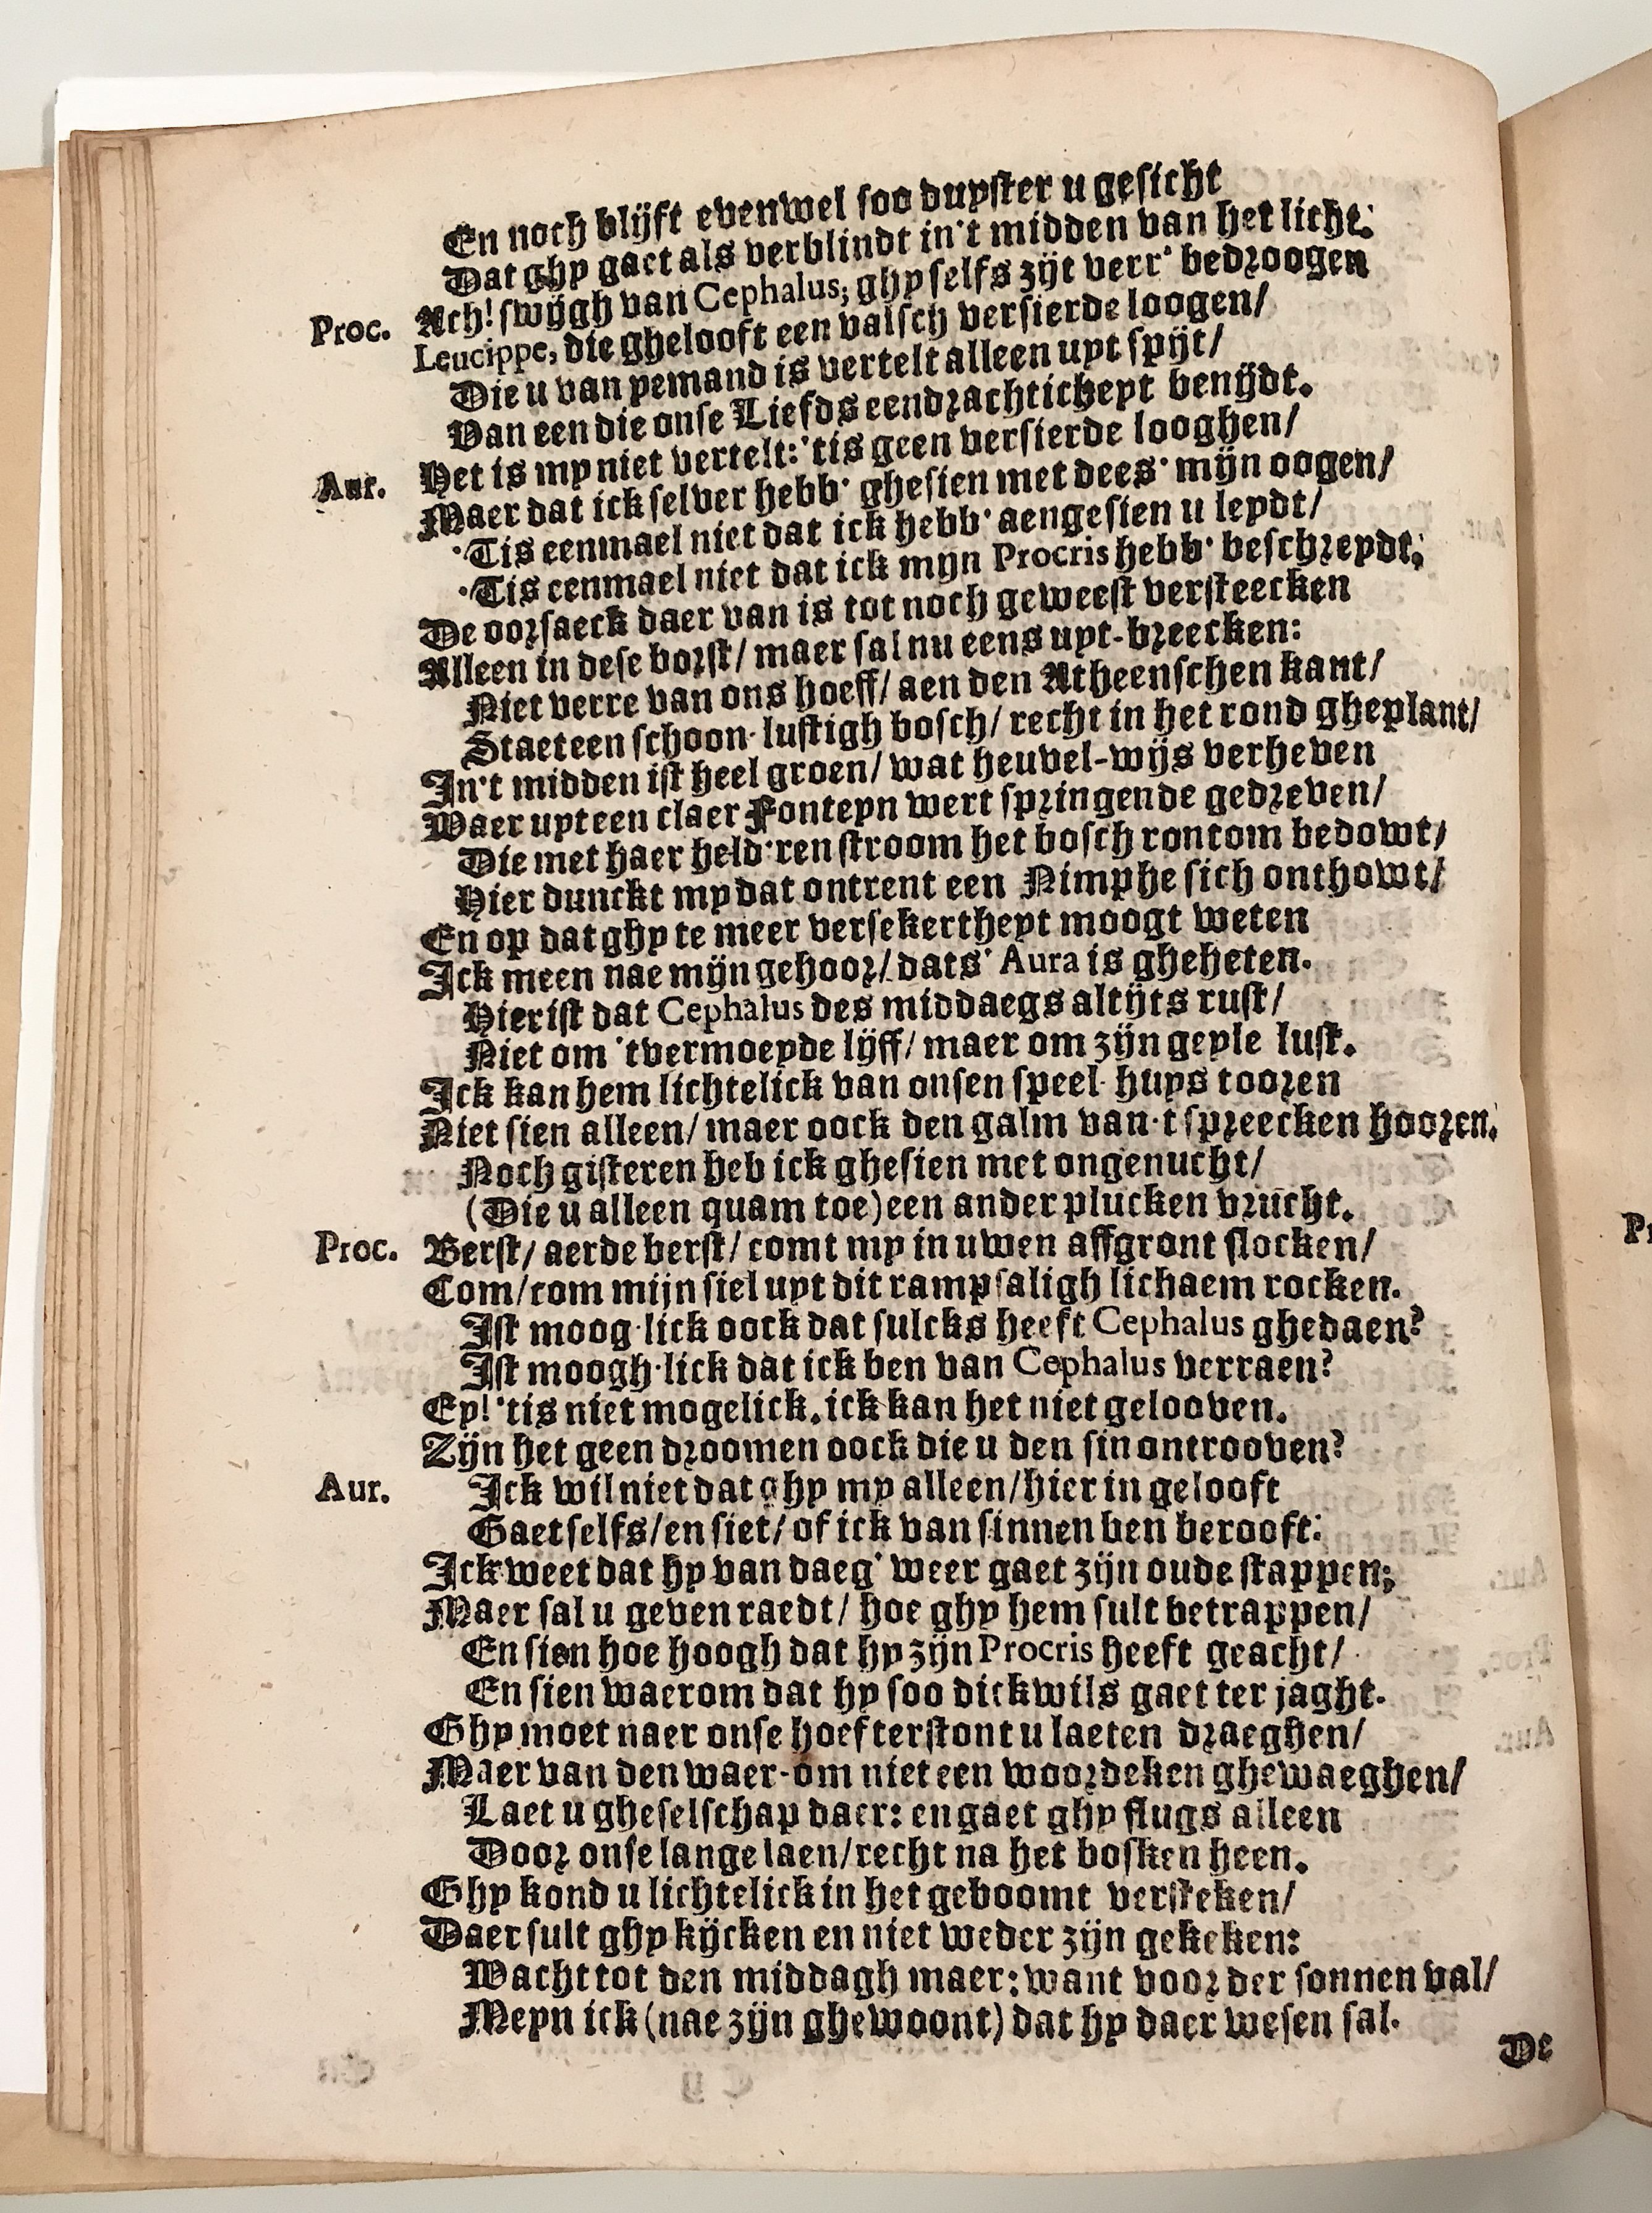 En noch blijft evenwel soo duyster u gesicht
Dat ghy gaet als verblindt in't midden van het licht.
Proc. Ach! swijgh van Cephalus; ghy selfs zijt verr' bedroogen
Leucippe, die ghelooft een valsch versierde loogen/
Die u van yemand is vertelt alleen uyt spijt/
Van een die onse Liefds eendrachticheyt benijdt.
Aur. Het is my niet vertelt: 'tis geen versierde looghen/
Maer dat ick selver hebb' ghesien met dees' mijn oogen/
'Tis eenmael niet dat ick hebb' aengesien u leydt/
'Tis eenmael niet dat ick mijn Procris hebb' beschreydt;
De oorsaeck daer van is tot noch geweest versteecken
Alleen in dese borst/ maer sal nu eens uyt-breecken:
Niet verre van ons hoeff/ aen den Atheenschen kant/
Staet een schoon lustigh bosch/ recht in het rond gheplant/
In't midden ist heel groen/ wat heuvel-wijs verheven
Waer uyt een claer Fonteyn wert springende gedreven/
Die met haer held'ren stroom het bosch rontom bedowt/
Hier dunckt my dat ontrent een Nimphe sich onthowt/
En op dat ghy te meer versekertheyt moogt weten
Ick meen nae mijn gehoor/ dats' Aura is gheheten.
Hier ist dat Cephalus des middaegs altijts rust/
Niet om 't vermoeyde lijff/ maer om zijn geyle lust.
Ick kan hem lichtelick van onsen speel-huys tooren
Niet sien alleen/ maer oock den galm van't spreecken hooren.
Noch gisteren heb ick ghesien met ongenucht/
(Die u alleen quam toe) een ander plucken vrucht.
Proc. Berst/ aerde berst/ comt my in uwen affgront slocken/
Com/ com mijn siel uyt dit rampsaligh lichaem rocken.
Ist moog'lick oock dat sulcks heeft Cephalus ghedaen?
Ist moogh'lick dat ick ben van Cephalus verraen?
Ey! 'tis niet mogelick, ick kan het niet gelooven.
Zijn het geen droomen oock die u den sin ontrooven?
Aur. Ick wil niet dat ghy my alleen/ hier in gelooft
Gaet selfs/ en siet/ of ick van sinnen ben berooft:
Ick weet dat hy van daeg' weer gaet zijn oude stappen;
Maer sal u geven raedt/ hoe ghy hem sult betrappen/
En sien hoe hoogh dat hy zijn Procris heeft geacht/
En sien waerom dat hy soo dickwils gaet ter jaght.
Ghy moet naer onse hoef terstont u laeten draeghen/
Maer van den waer-om niet een woordeken ghewaeghen/
Laet u gheselschap daer: en gaet ghy flugs alleen
Door onse lange laen/ recht na het bosken heen.
Ghy kond u lichtelick in het geboomt versteken/
Daer sult ghy kijcken en niet weder zijn gekeken:
Wacht tot den middagh maer: want voor der sonnen val/
Meyn ick (nae zijn ghewoont) dat hy daer wesen sal.
De